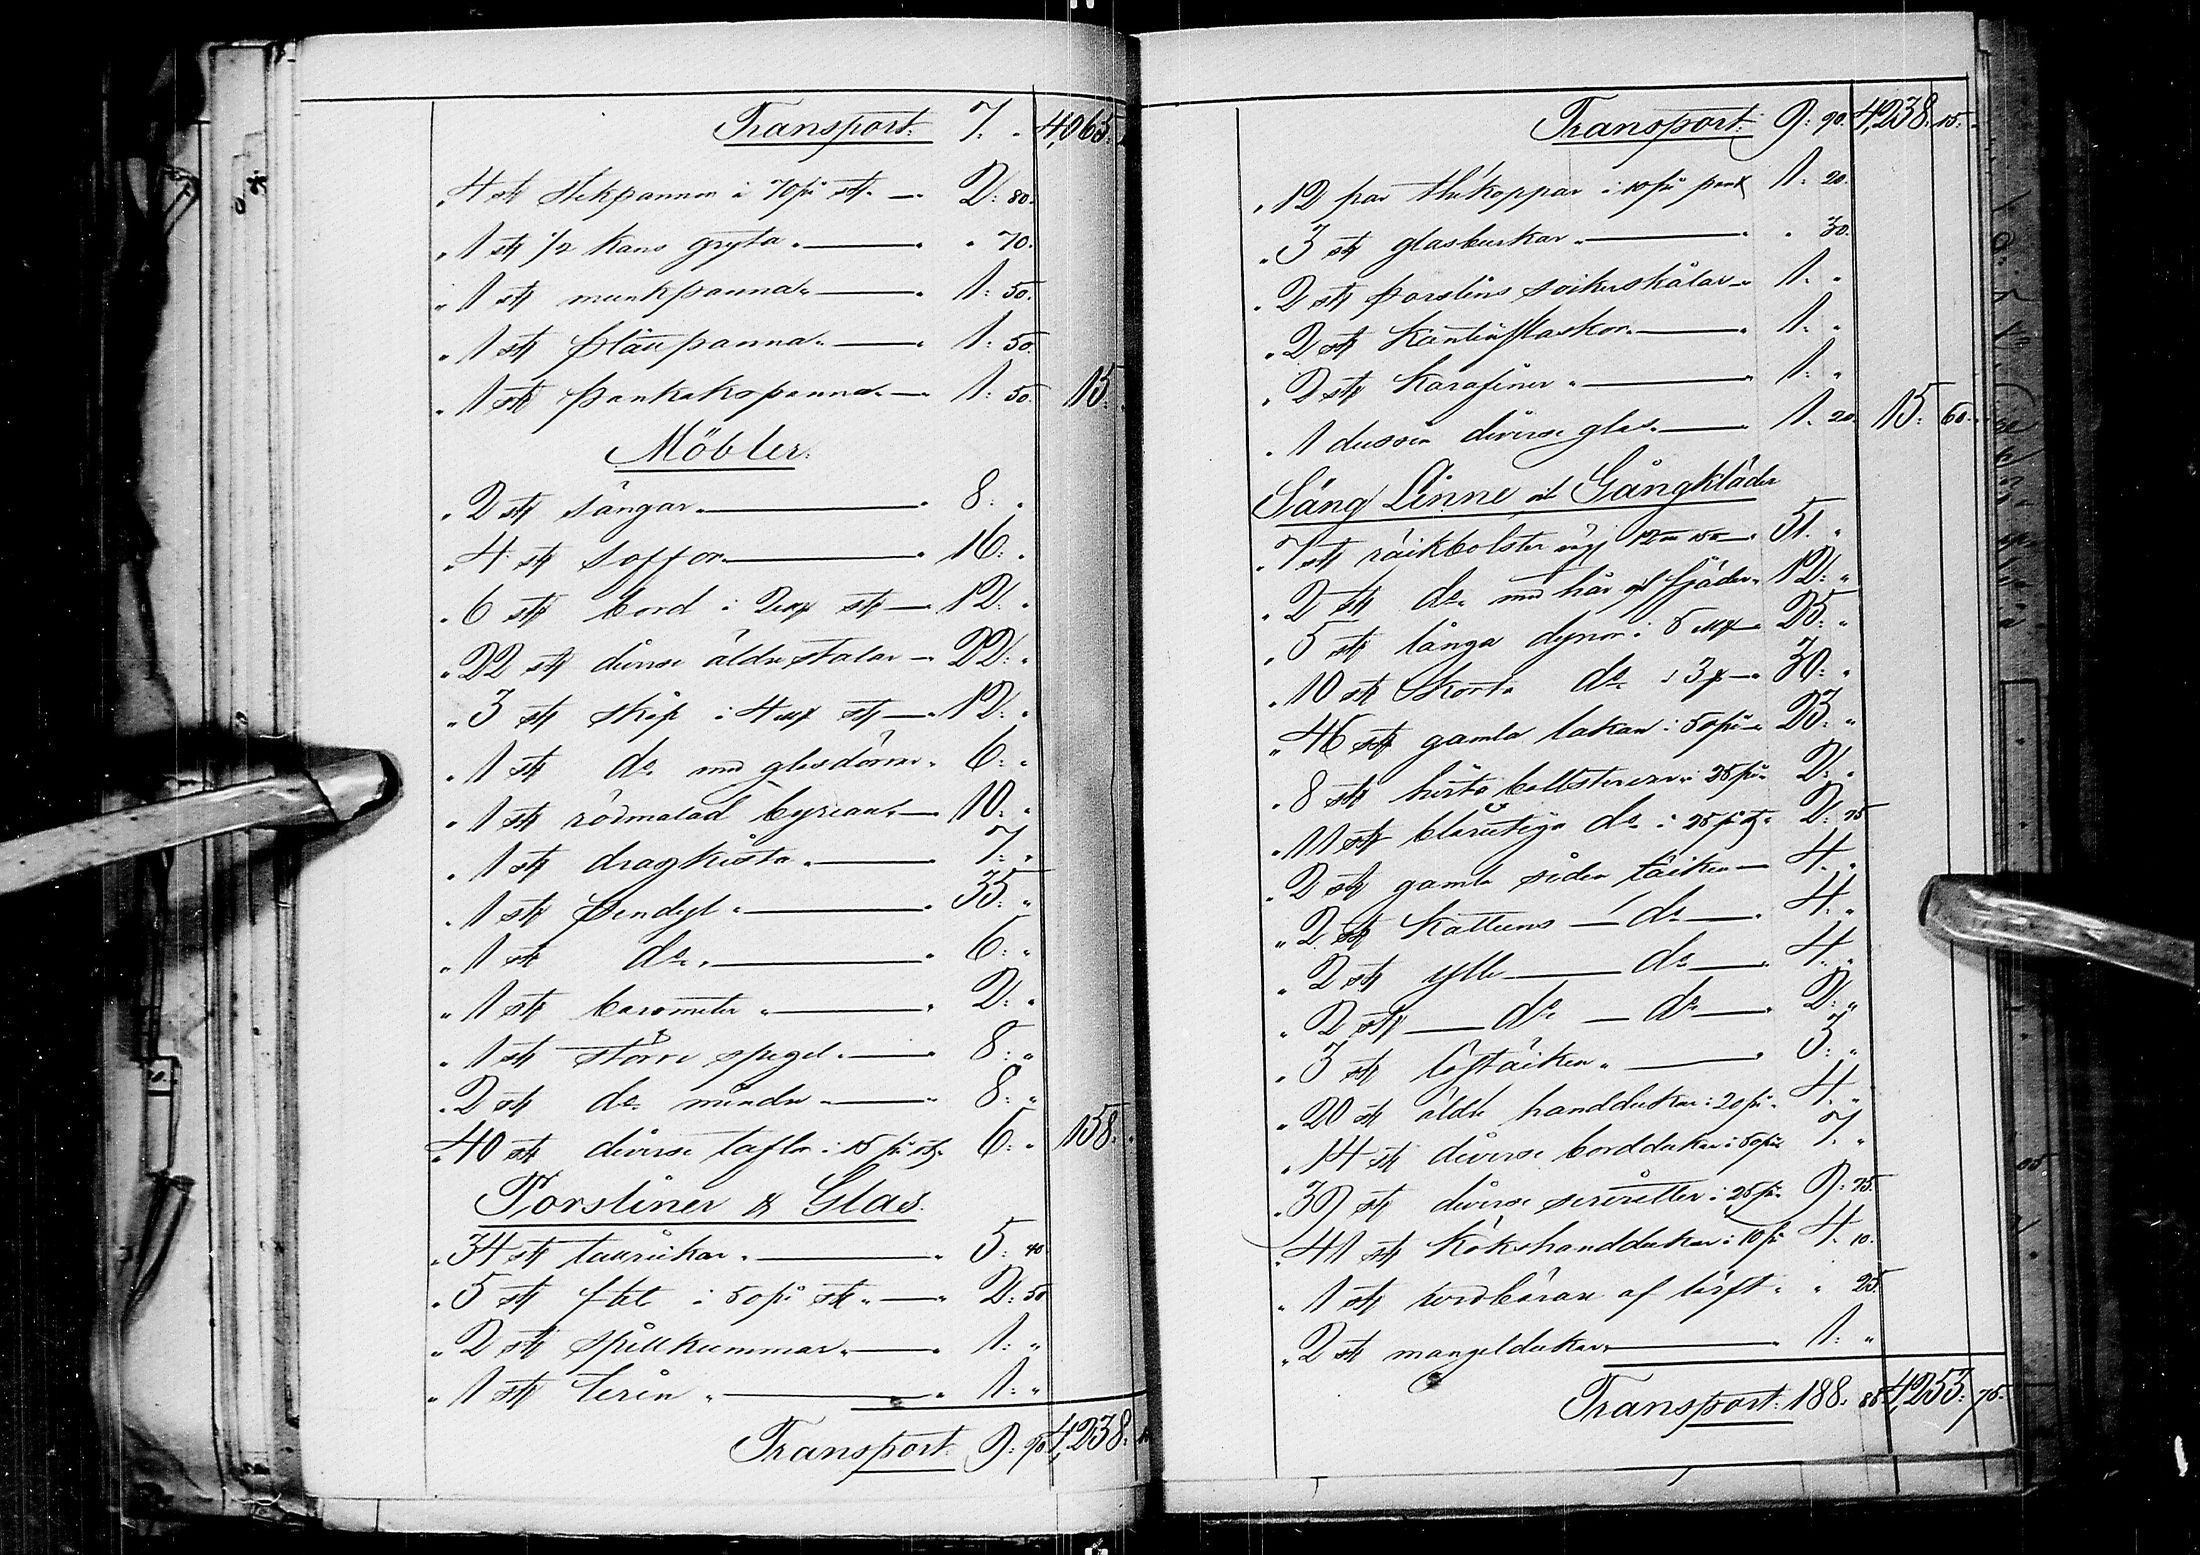 Transport: 7. " 4,065:
" 4 st stekpannor à 70 pi st. — 2: 80.
" 1 st 1/2 kans gryta " — " " 70.
" 1 st munkpanna " — " 1: 50.
" 1 st plättpanna " — " 1: 50.
" 1 st pankakspanna — " 1: 50. 15:
Möbler.
" 2 st sängar " — " 8: "
" 4 st soffor — " 16: "
" 6 st bord à 2 mk st — " 12: "
" 22 st diverse äldre stolar — " 22: "
" 3 st skåp à 4 mk st — " 12: "
" 1 st do med glasdörrar " 6: "
" 1 st rödmålad — " 10: "
" 1 st dragkista " — 7: "
" 1 st pendyl " — " 35: "
" 1 st do " — " 6: "
" 1 st barometer " — " 2: "
" 1 st större spegel " — " 8: "
" 2 st do mindre " — " 8: "
" 40 st diverse taflor à 15 pi st " 6: " 158:
Porsliner & Glas.
" 34 st tallrikar " — " 5: 40
" 5 st fat à 50 pi st " — " 2: 50
" 2 st spillkummar " — " 1: "
" 1 st terin " — " 1: "
Transport: 9: 90 4,238:
Transport: 9: 90. 4,238: 15:
" 12 par thékoppar à 10 pi paret 1: 20.
" 3 st glasburkar " — " " 30.
" 2 st porslins sockerskålar — " 1: "
" 2 st kantinflaskor — " 1: "
" 2 st karafiner " — " 1: "
" 1 dussin diverse glas — " 1: 20. 15: 60.
Säng Linne och Gångkläder
" 7 st 51. "
" 2 st do med hår och fjäder " 12: "
" 5 st långa dynor à 5 mk — " 25: "
" 10 st korta do à 3 — " 30: "
" 46 st gamla lakan à 50 pi — " 23: "
" 8 st à 25 pi " 2: "
" 11 st blårutiga do à 25 pi st " 2: 75
" 2 st gamla siden täcken — 4: "
" 2 st kattuns — do — " 4: "
" 2 st ylle — do — " 4: "
" 2 st — do — do — " 2: "
" 3 st " — " 3: "
" 20 st äldre handdukar à 20 pi " 4: "
" 14 st diverse borddukar à 50 pi 7: "
" 39 st diverse servietter à 25 pi " 9: 75.
" 41 st kökshanddukar à 10 pi 4: 10.
" 1 st af lärft " " 25.
" 2 st mangeldukar — " 1: "
Transport: 188. 85 4,253: 75.